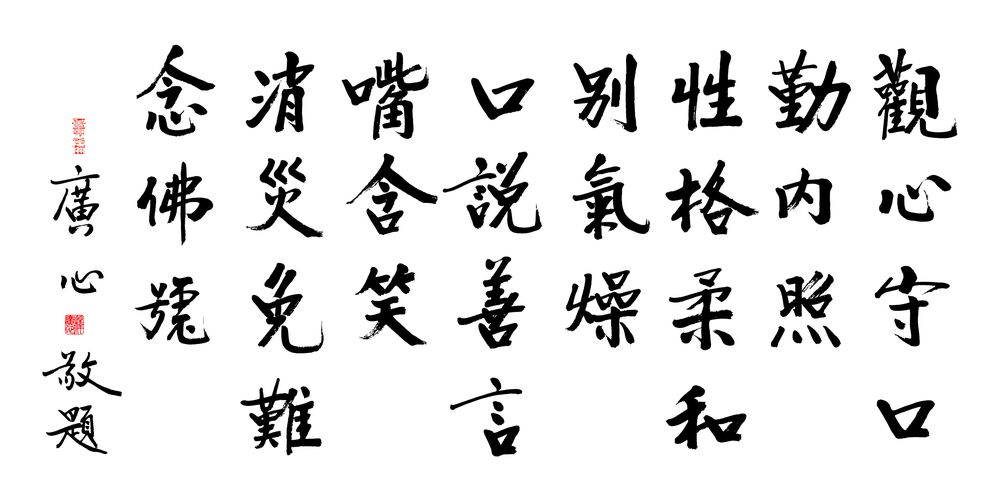 觀心守口
勤內照
性格柔和
別氣燥
口說善言
嘴含笑
消災免難
念佛號
廣心敬題